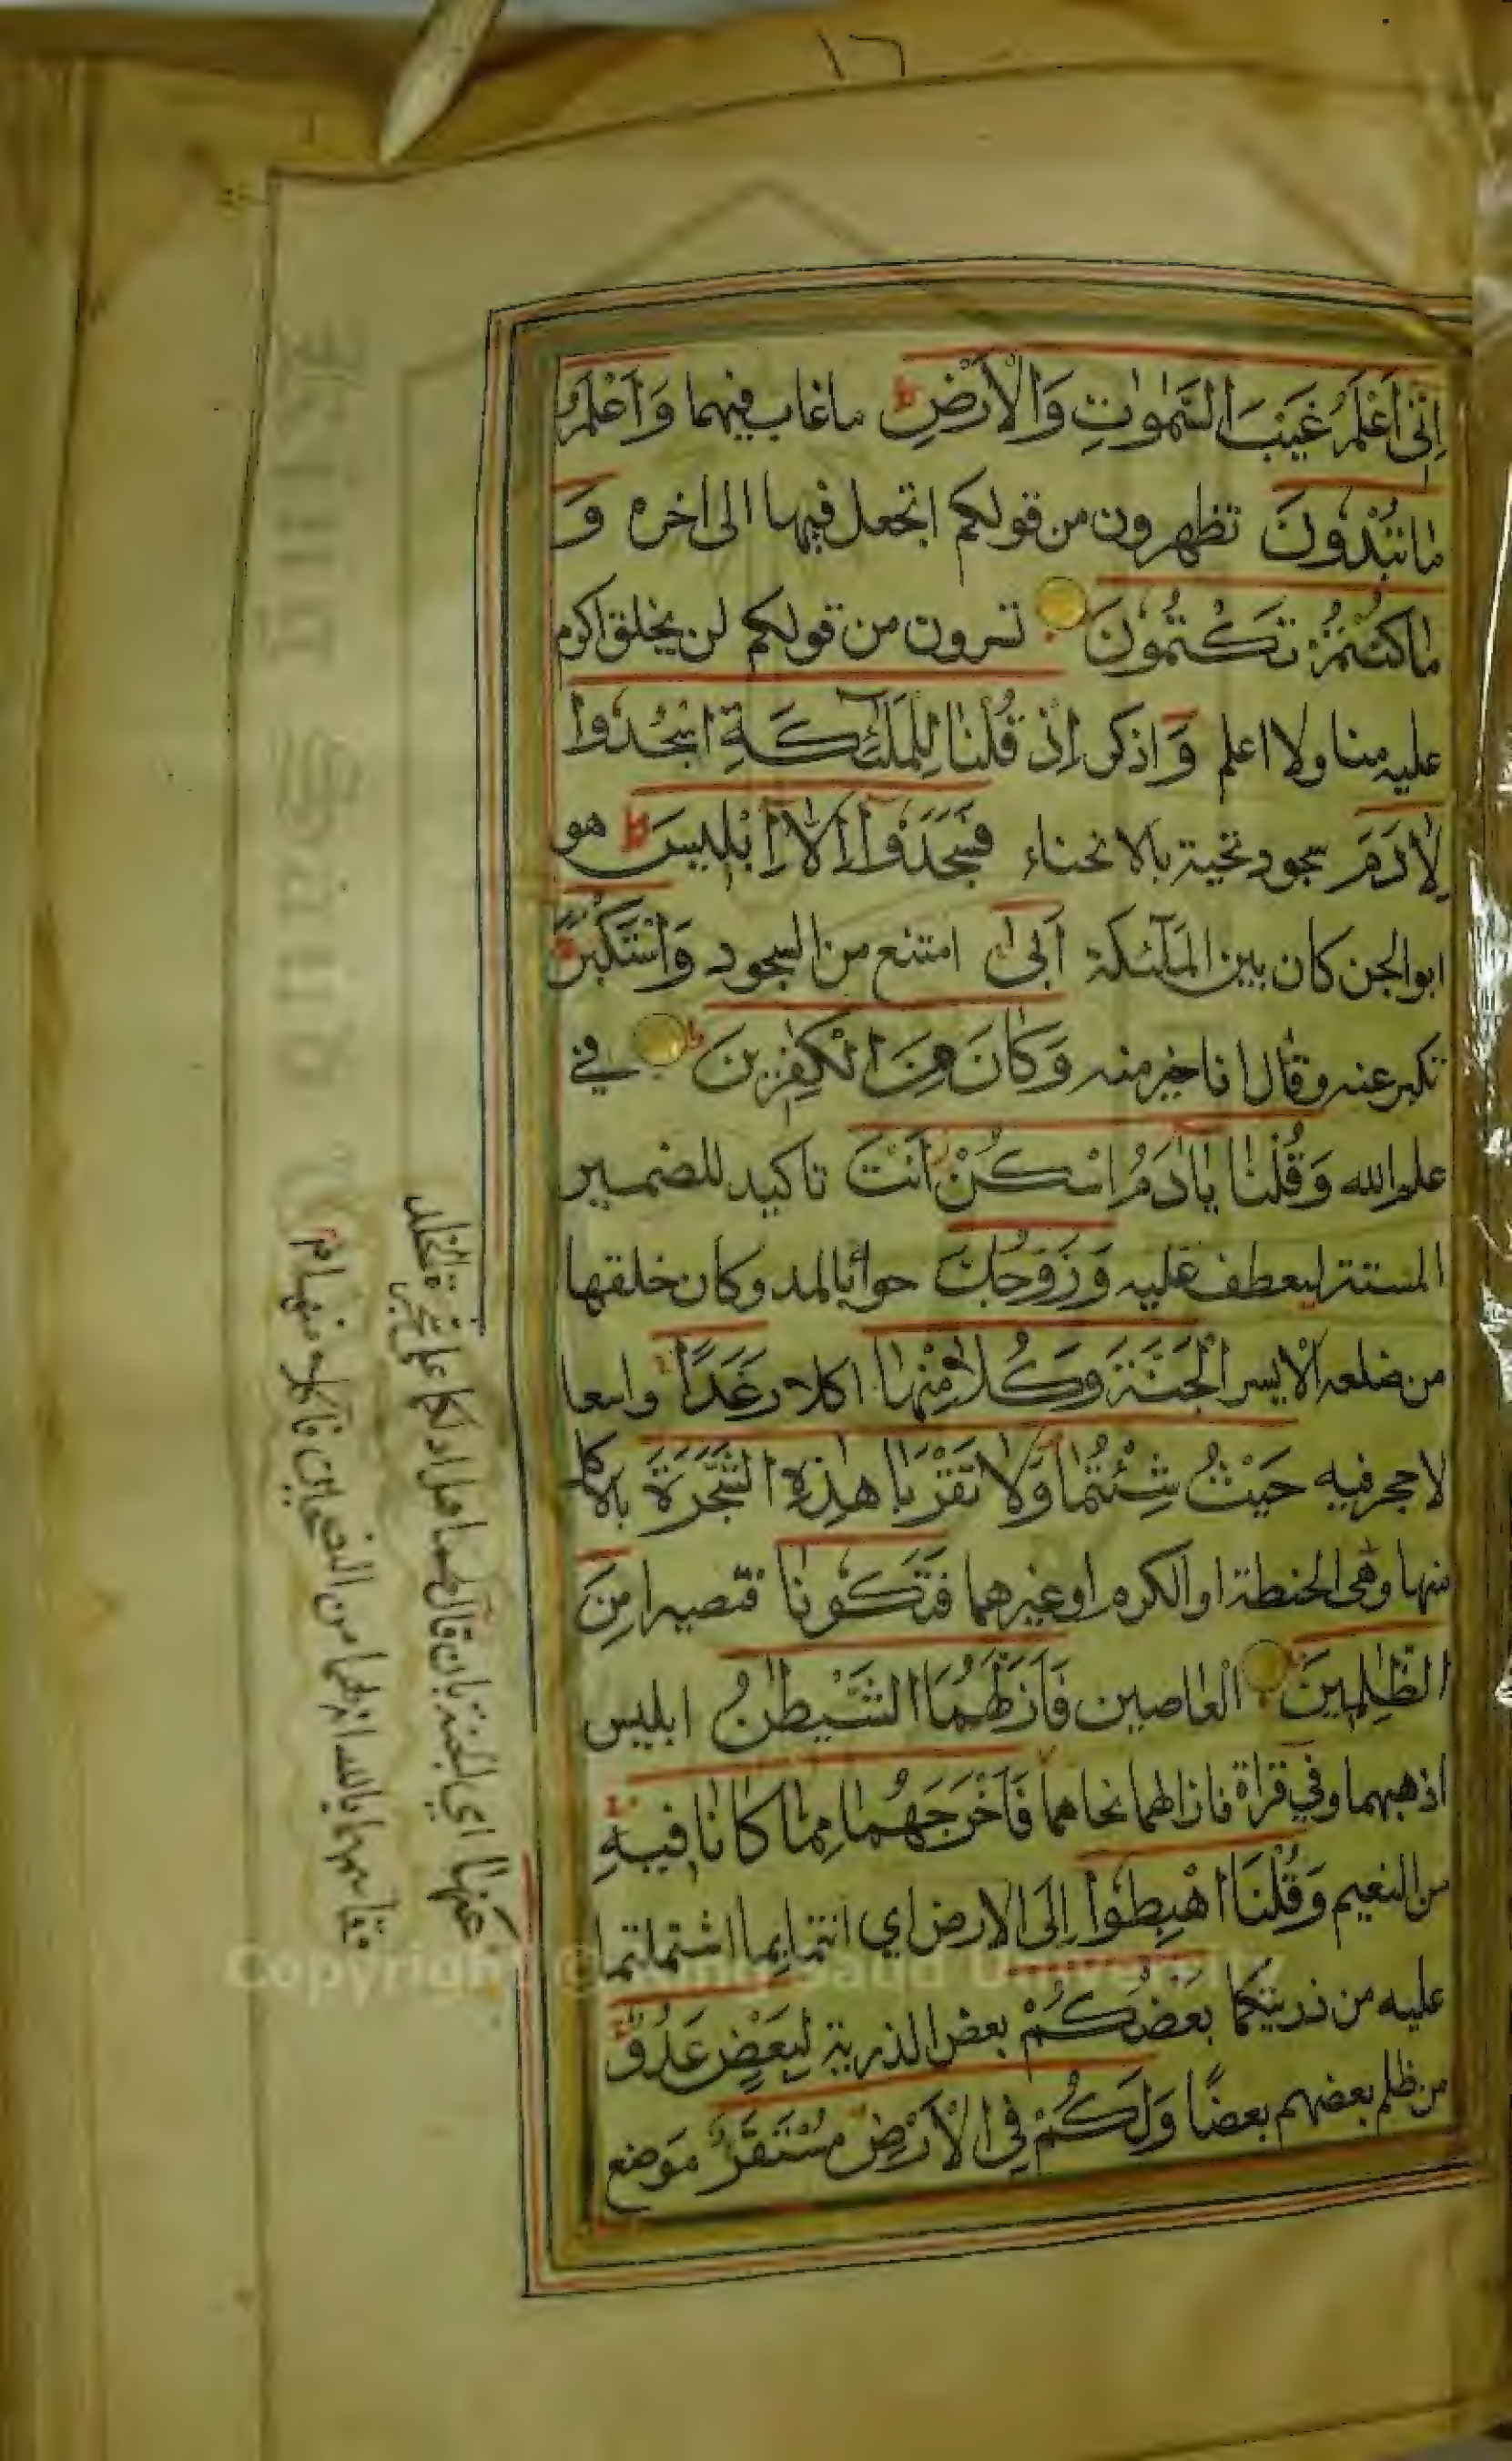 ١٦
اِنّىٓ اَعْلَمُ غَيْبَ السَّمٰوٰتِ وَالْاَرْضِ ط ماغاب فيهما وَاَعْلَمُ
مَاتُبْدُونَ تظهرون من قولكم اتجعل فيها الى اخره وَ
مَاكُنْتُمْ تَكْتُمُونَ تسرون من قولكم لن يخلق اكرم
عليه منا ولا اعلم وَ اذكر اِذْ قُلْنَا لِلْمَلٰٓئِكَةِ اسْجُدُوا
لِاٰدَمَ سجود تحية بالانحناء فَسَجَدُوٓا اِلَّآ اِبْلِيسَ ط هو
ابو الجن كان بين الملٰٓئكة اَبٰى امتنع من السجود وَاسْتَكْبَرَ
تكبر عنه وقال انا خير منه وَكَانَ مِنَ الْكٰفِرِينَ ط فى
علم الله وَقُلْنَا يَآاٰدَمُ اسْكُنْ اَنْتَ تاكيد للضمير
المستتر ليعطف عليه وَزَوْجُكَ حواء بالمد وكان خلقها
من ضلعه الايسر الْجَنَّةَ وَكُلَا مِنْهَا اكلا رَغَدًا واسعا
لا حجر فيه حَيْثُ شِئْتُمَا وَلَا تَقْرَبَا هٰذِهِ الشَّجَرَةَ بالاكل
منها وهى الحنطة او الكرم او غيرهما فَتَكُونَا فتصيرا مِنَ
الظّٰلِمِينَ العاصين فَاَزَلَّهُمَا الشَّيْطٰنُ ابليس
اذهبهما وفي قراة فازالهما نحاهما فَاَخْرَجَهُمَا مِمَّا كَانَا فِيهِ
من النعيم وَقُلْنَا اهْبِطُوا اِلَى الارض اي انتما بما اشتملتما
عليه من ذريتكما بَعْضُكُمْ بعض الذرية لِبَعْضٍ عَدُوٌّ
من ظلم بعضهم بعضًا وَلَكُمْ فِى الْاَرْضِ مُسْتَقَرٌّ موضع
عَنْهَا اي الجنة بان قال لهما هل ادلكما على شجرة الخلد
وقاسمهما بالله انه لهما من الناصحين فاكلا منها م
King Saud
Copyright © King Saud University